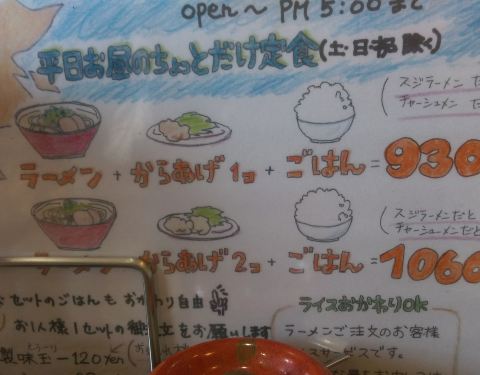 open～ PM 5:00 まで
平日お昼のちょっとだけ定食(土・日・祝 除く)
(スジラーメン
チャーシューメン
ラーメン + からあげ1コ + ごはん = 930
(スジラーメンだと
チャーシューメンだと
ラーメン + からあげ2コ + ごはん = 1060
セットのごはんも おかわり自由
お1人様1セットの御注文をお願いします
製味玉一120yen
ライスおかわりOK
ラーメンご注文のお客様
スサービスです。